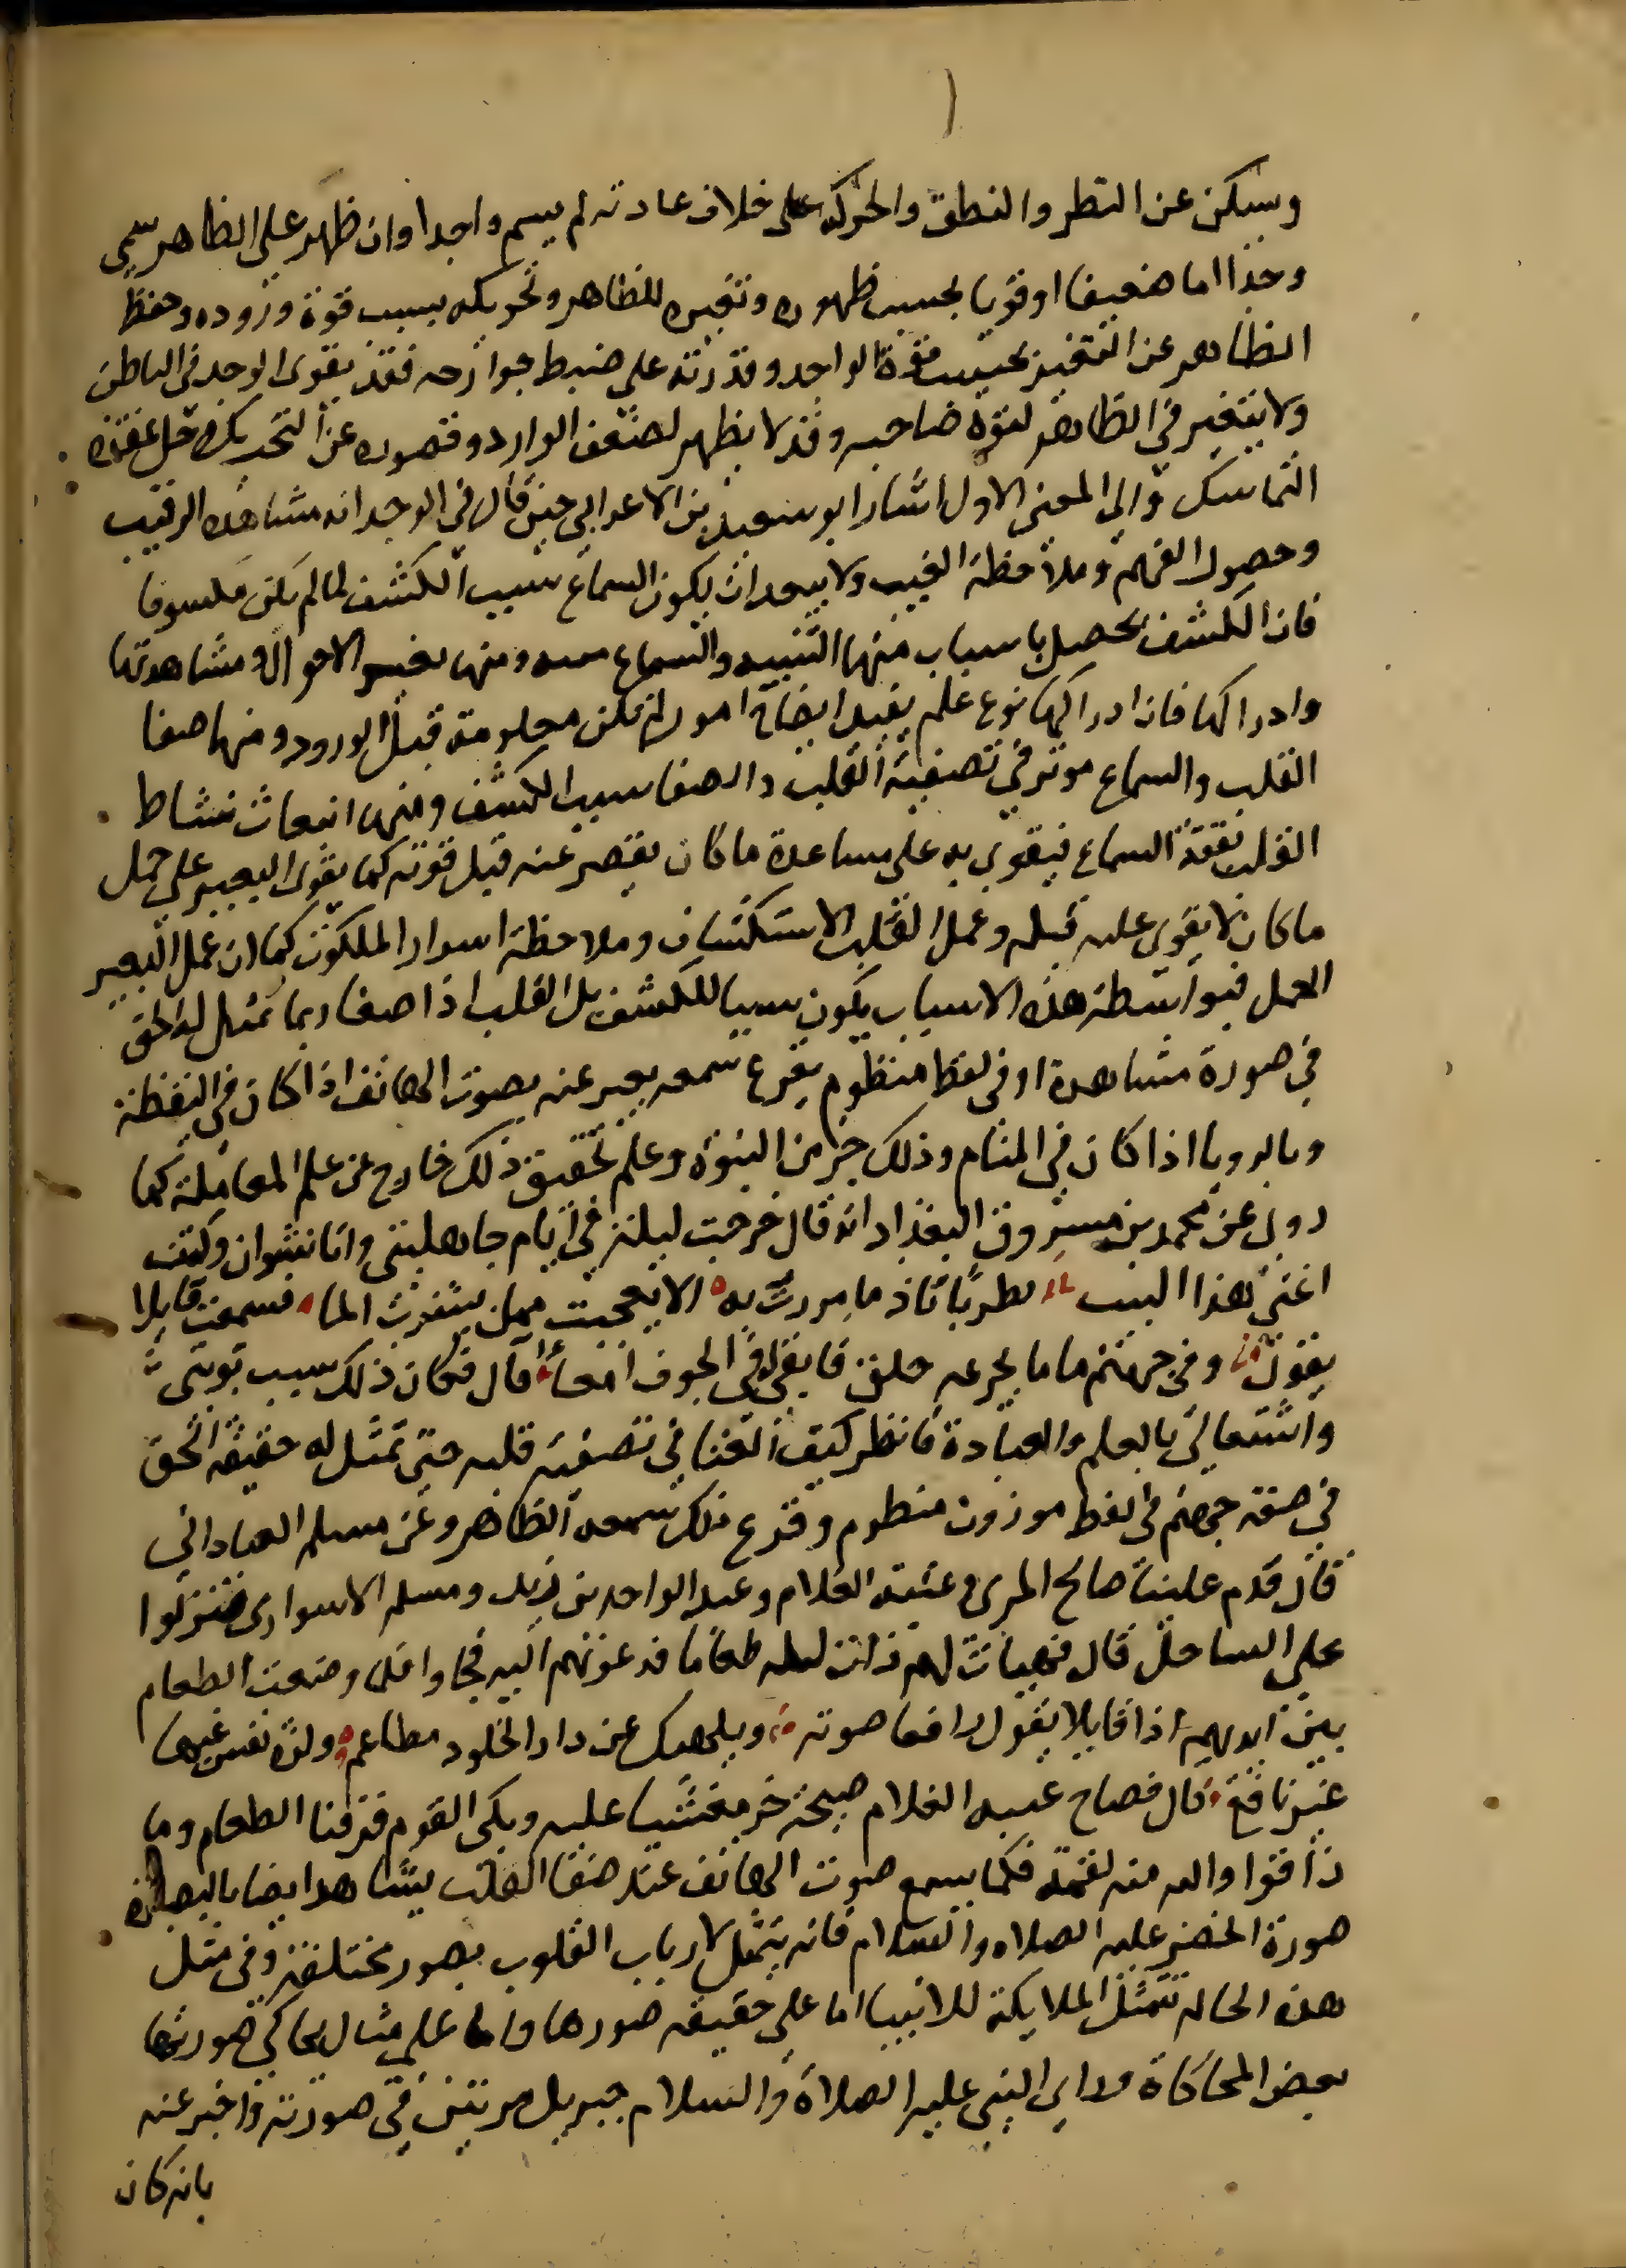 وسكن عن النظر والنطق والحركة على خلاف عادته لم يسم واجدا وان ظهر على الظاهر سمي
وجدا اما ضعيفا او قويا بحسب ظهوره وتغييره للظاهر وتحريكه بسبب قوة وروده وحفظ
الظاهر عن التغيير بحسب قوة الواجد وقدرته على ضبط جوارحه فقد يقوى الوجد في الباطن
ولا يتغير في الظاهر لقوة صاحبه وقد لا يظهر لضعف الوارد وقصوره عن التحريك وحل عقدة
التماسك والى المعنى الاول اشار ابو سعيد بن الاعرابي حين قال في الوجد انه مشاهدة الرقيب
وحصول الفهم وملاحظة الغيب ولا يبعد ان يكون السماع سبب الكشف لما لم يكن مكسوفا
فان الكشف يحصل باسباب منها التنبيه والسماع منبه ومنها تغير الاحوال ومشاهدتها
وادراكها فان ادراكها نوع علم يفيد ايضاح امور لم تكن معلومة قبل الورود ومنها صفا
القلب والسماع موثر في تصفية القلب والصفا سبب الكشف ومنها انبعاث نشاط
القلب بقوة السماع فيقوى به على مساعدة ما كان يقصر عنه قبل قوته كما يقوى البعير على حمل
ما كان لا يقوى عليه قبله وعمل القلب الاستكشاف وملاحظة اسرار الملكوت كما ان عمل البعير
الحمل فبواسطة هذه الاسباب يكون سببا للكشف بل القلب اذا صفا ربما تمثل له الحق
في صورة مشاهدة او في لفظ منظوم يقرع سمعه يعبر عنه بصوت الهاتف اذا كان في اليقظة
وبالرويا اذا كان في المنام وذلك جز من النبوة وعلم تحقيق ذلك خارج عن علم المعاملة كما
روي عن محمد بن مسروق البغداد انه قال خرجت ليلة في ايام جاهليتي وانا نشوان وكنت
اغني هذا البيت بطرناباذ ما مررت به الا تعجبت ممن يشرب الما فسمعت قايلا
يقول وفي جهنم ما ما تجرعه حلق فابقى في الجوف امعاء قال فكان ذلك سبب توبتي
واشتغالي بالعلم والعبادة فانظر كيف الغنا في تصفية قلبه حتى تمثل له حقيقة الحق
في صفة جهنم في لفظ موزون منظوم وقرع ذلك سمعه الظاهر وعن مسلم العباداني
قال قدم علينا صالح المري وعتبة الغلام وعبد الواحد بن زيد ومسلم الاسواري فنزلوا
على الساحل قال فهيات لهم ذات ليلة طعاما فدعوتهم اليه فجاوا فلما وضعت الطعام
بين ايديهم اذا قايلا يقول رافعا صوته ويلهيك عن دار الخلود مطاعم ولذة نفس غيها
غير نافع قال فصاح عتبة الغلام صيحة خر مغشيا عليه وبكى القوم فرفنا الطعام وما
ذاقوا والله منه لقمة فكما يسمع صوت الهاتف عند صفا القلب يشاهد ايضا بالبصر
صورة الخضر عليه الصلاة والسلام فانه يتمثل لارباب القلوب بصور مختلفة وفي مثل
هذه الحالة تتمثل الملايكة للانبيا اما على حقيقة صورها واما على مثال يحاكي صورتها
بعض المحاكاة وراى النبي عليه الصلاة والسلام جبريل مرتين في صورته واخبر عنه
بانه كان